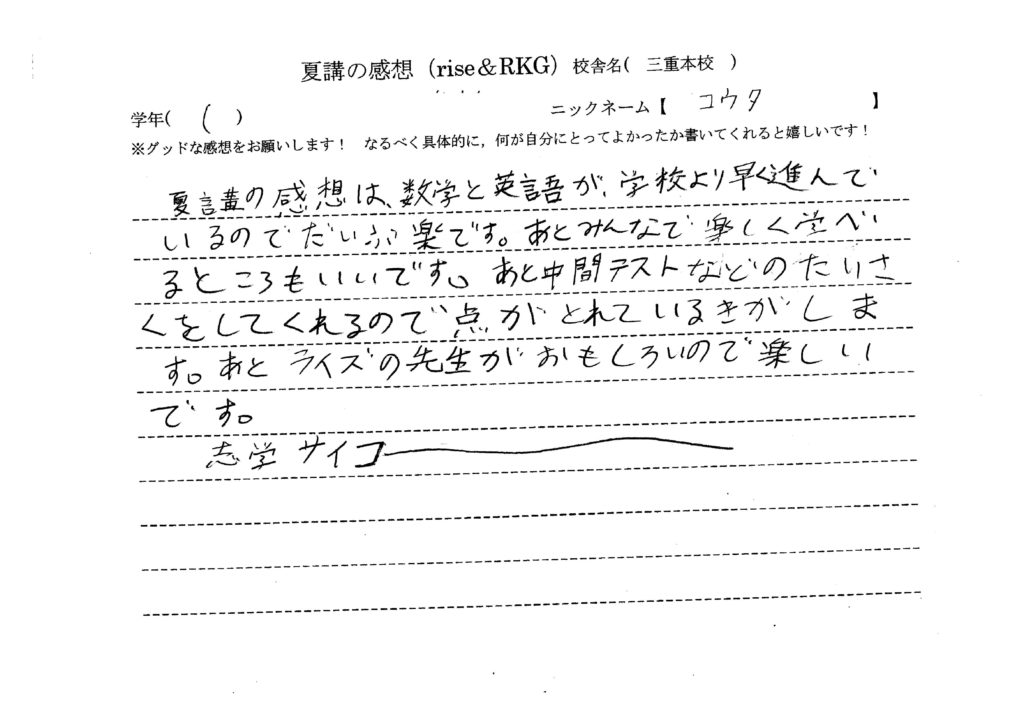 夏講の感想（rise＆RKG）校舎名(　三重本校　)
学年(　1　)　ニックネーム【　コウタ　】
※グッドな感想をお願いします！　なるべく具体的に，何が自分にとってよかったか書いてくれると嬉しいです！
夏講の感想は、数学と英語が、学校より早く進んで
いるのでだいぶ楽です。あとみんなで楽しく学べ
るところもいいです。あと中間テストなどのたいさ
くをしてくれるので点がとれているきがしま
す。あとライズの先生がおもしろいので楽しい
です。
志学サイコー